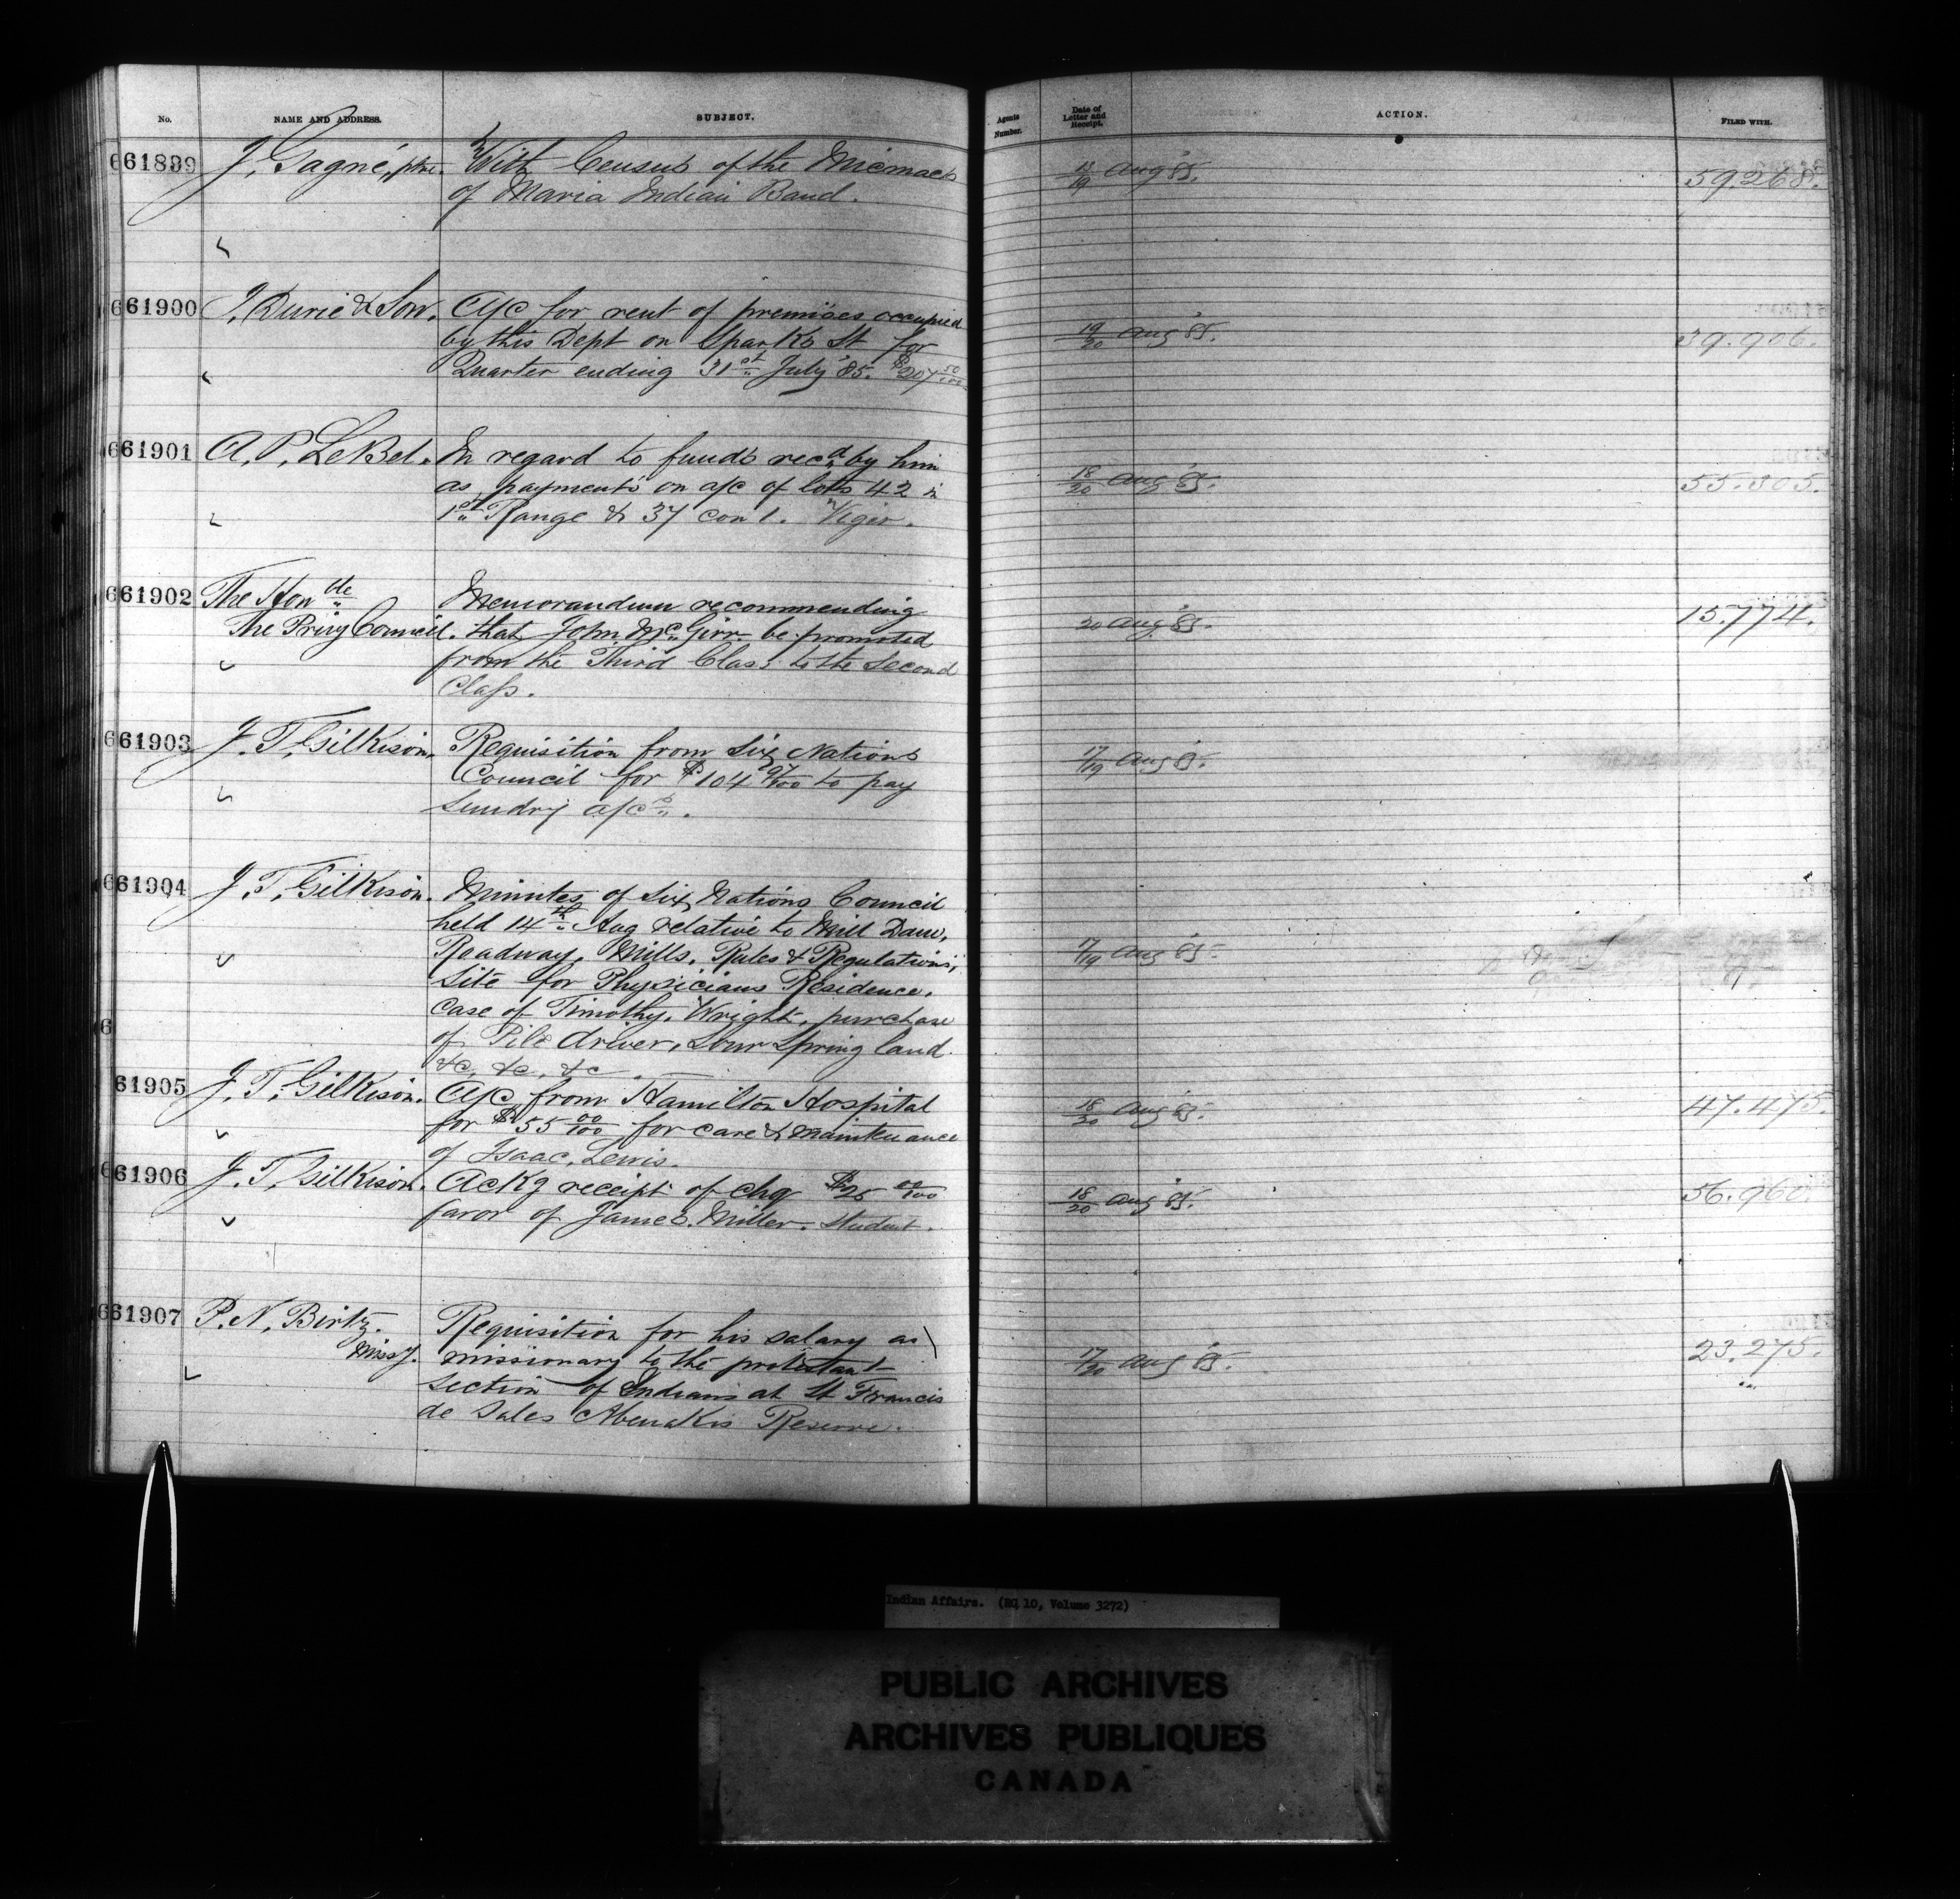 No. NAME AND ADDRESS. SUBJECT. Agents Number. Date of Letter and Receipt. ACTION. FILED WITH.
661899 J. Gagné, ptre. With Census of the Micmacs 18/19 Aug '85. 59.268.
of Maria Indian Band.
661900 J. Durie & Son. A/c for rent of premises occupied
by this Dept on Sparks St for 19/20 Aug '85. 39.906.
Quarter ending 31st July '85. $207 50/100
661901 A. P. LeBel. In regard to funds recd by him
as payments on a/c of lots 42 in 18/20 Aug '85. 55.305.
1st Range & 37 con 1. Viger.
661902 The Honble Memorandum recommending
The Privy Council. that John McGirr be promoted 20 Aug '85. 15.774.
from the Third Class to the Second
Class.
661903 J. T. Gilkison. Requisition from Six Nations 17/19 Aug '85.
Council for $104 to pay
Sundry a/cs.
661904 J. T. Gilkison. Minutes of Six Nations Council
held 14th Aug relative to Mill Dam,
Roadway, Mills, Rules & Regulations, 17/19 Aug '85
Site for Physicians Residence,
case of Timothy Wright, purchase
6 of Pile driver, Sour Spring land
&c, &c, &c.
61905 J. T. Gilkison. A/c from Hamilton Hospital 18/20 Aug '85. 47.475.
for $55 00/100 for care & maintenance
of Isaac Lewis.
661906 J. T. Gilkison. Ackg receipt of chq $25 00/100 18/20 Aug '85. 56.960.
favor of James Miller. Student.
661907 P. N. Birtz. Requisition for his salary as
Missy. missionary to the protestant 17/20 Aug '85. 23.275.
section of Indians at St Francis
de Sales Abenakis Reserve.
Indian Affairs. (RG 10, Volume 3272)
PUBLIC ARCHIVES
ARCHIVES PUBLIQUES
CANADA